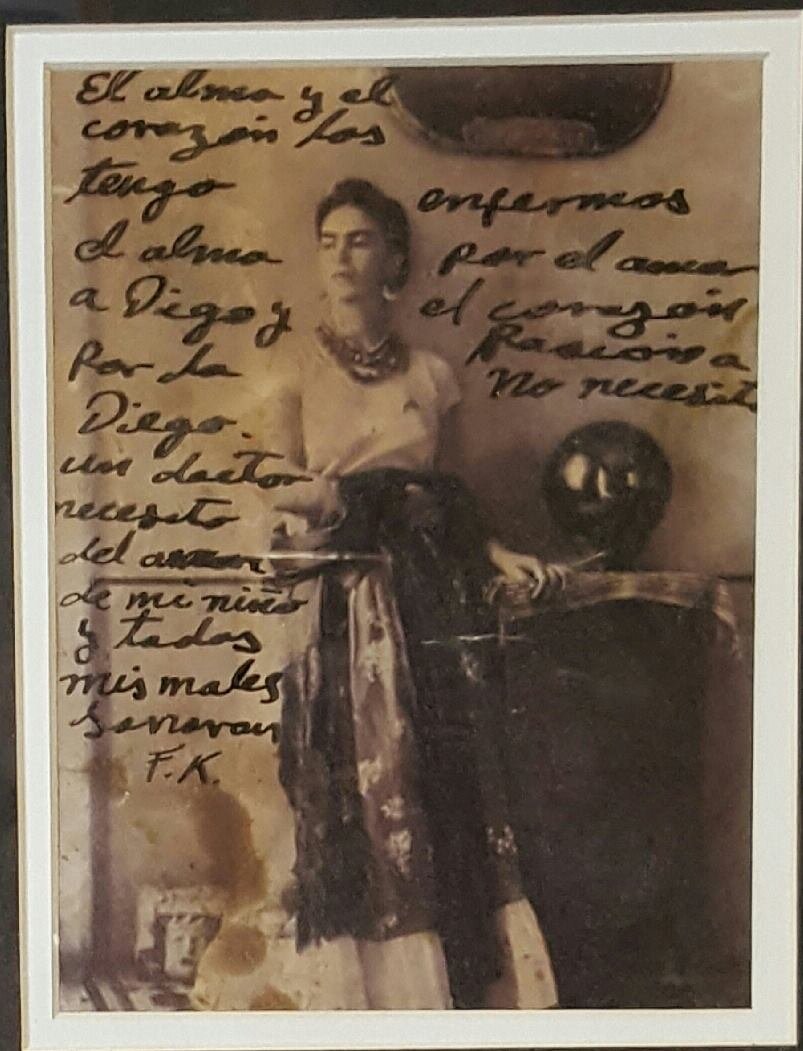 El alma y el
corazón los
tengo enfermos
el alma por el amor
a Digo y el corazón
Por la Pasiona a
Diego. No necesito
un doctor
necesito
del amor
de mi niño
y todos
mis males
sanaran
F.K.